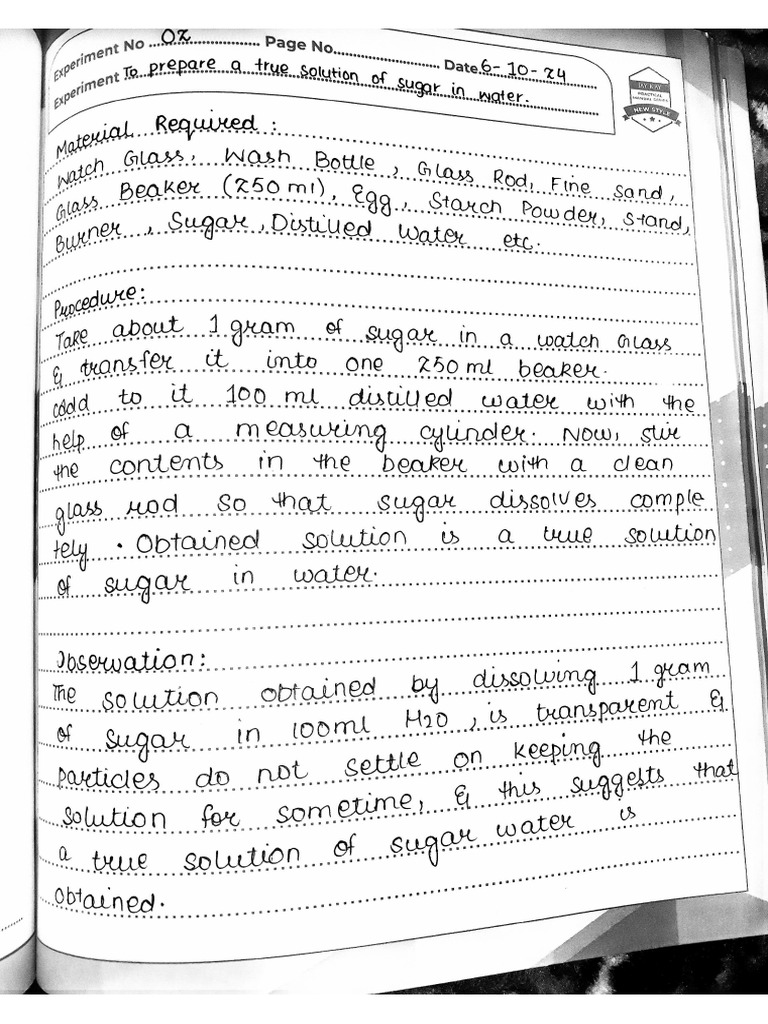 Experiment No ...02... Page No.
Date.6-10-24
Experiment To prepare a true solution of sugar in water.
JAY KAY
PRACTICAL
NEW STYLE
Material Required :
Watch Glass, Wash Bottle, Glass Rod, Fine Sand,
Glass Beaker (250 ml), Egg, Starch Powder, Stand,
Burner, Sugar, Distilled Water etc.
Procedure:
Take about 1 gram of sugar in a watch Glass
& transfer it into one 250 ml beaker.
add to it 100 ml distilled water with the
help of a measuring cylinder. Now, stir
the contents in the beaker with a clean
glass rod so that sugar dissolves comple
tely. Obtained solution is a true solution
of sugar in water.
Observation:
The solution obtained by dissolving 1 gram
of sugar in 100ml H2O, is transparent &
particles do not settle on keeping the
solution for sometime, & this suggests that
a true solution of sugar water is
obtained.